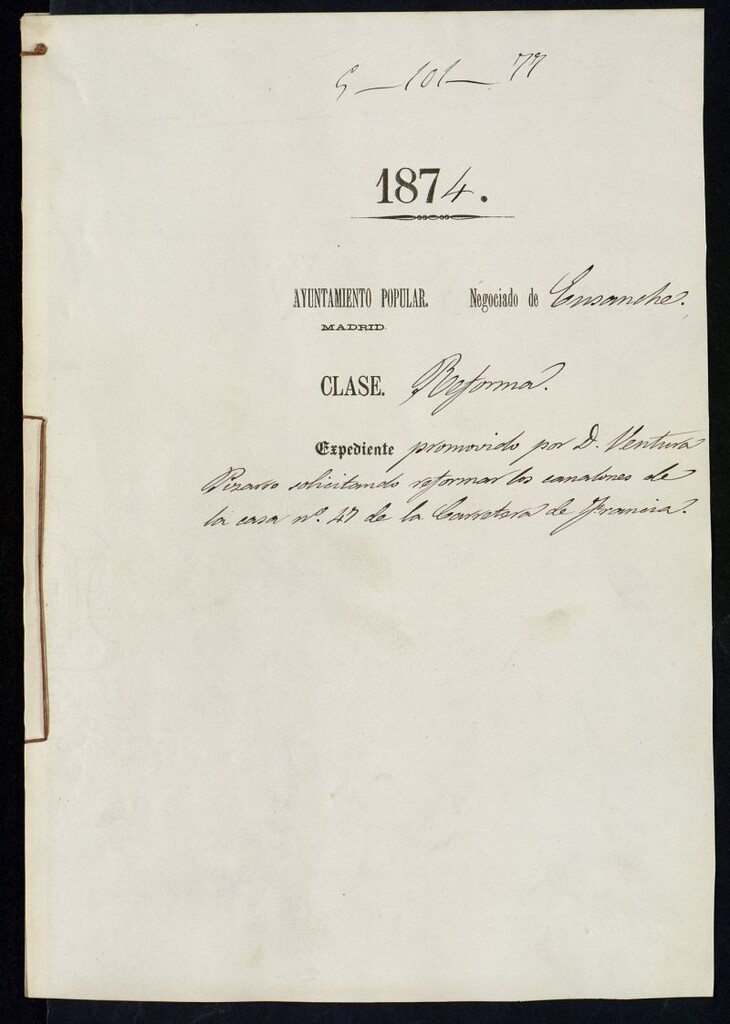 5-101-77
1874.
AYUNTAMIENTO POPULAR. Negociado de Ensanche.
MADRID.
CLASE. Reforma.
Expediente promovido por D. Ventura
Pizarro solicitando reformar los canalones de
la casa nº. 47 de la Carretera de Francia.